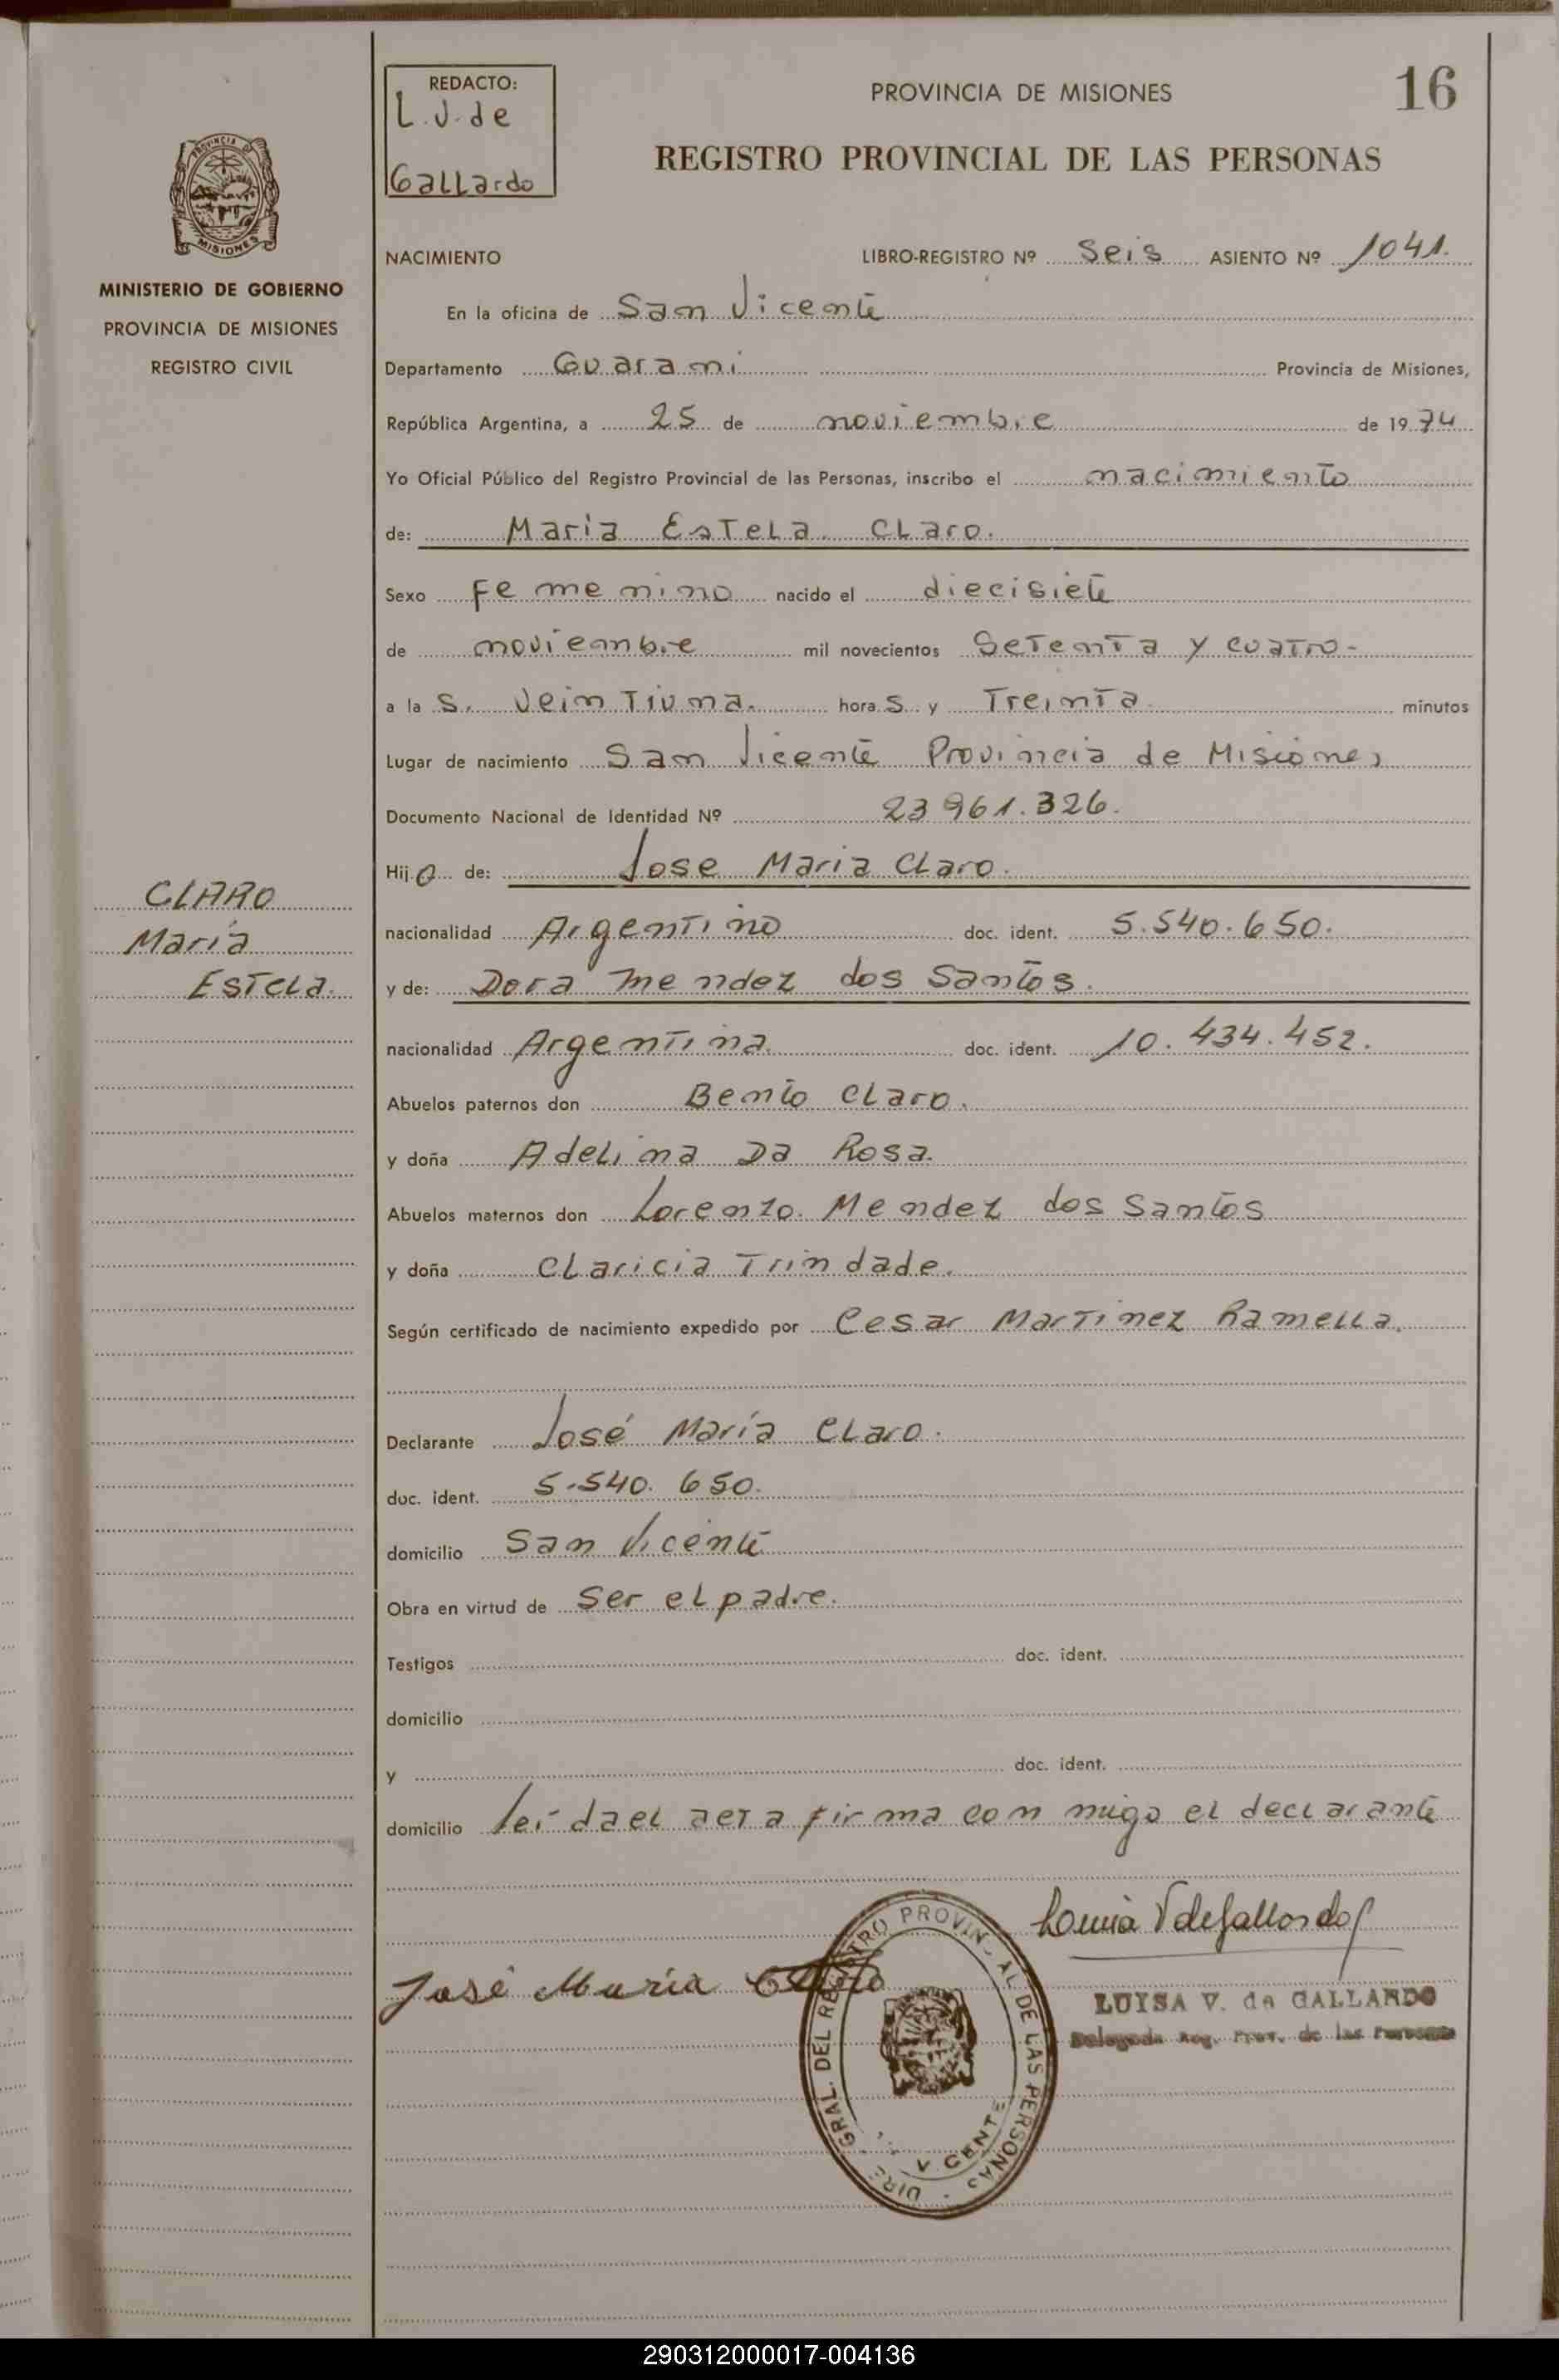 REDACTO:
L.V. de
Gallardo
PROVINCIA DE MISIONES
16
REGISTRO PROVINCIAL DE LAS PERSONAS
PROVINCIA DE
MISIONES
MINISTERIO DE GOBIERNO
PROVINCIA DE MISIONES
REGISTRO CIVIL
NACIMIENTO LIBRO-REGISTRO Nº Seis ASIENTO Nº 1041.
En la oficina de San Vicente
Departamento Guarani Provincia de Misiones,
República Argentina, a 25 de noviembre de 1974
Yo Oficial Público del Registro Provincial de las Personas, inscribo el nacimiento
de: Maria Estela Claro.
Sexo Femenino nacido el diecisiete
de noviembre mil novecientos Setenta y cuatro-
a la s. Veintiuna. hora s y Treinta minutos
Lugar de nacimiento San Vicente Provincia de Misiones
Documento Nacional de Identidad Nº 23 961.326.
Hij a de: Jose Maria Claro.
CLARO
María
Estela.
nacionalidad Argentino doc. ident. 5.540.650.
y de: Dora Mendez dos Santos.
nacionalidad Argentina. doc. ident. 10.434.452.
Abuelos paternos don Benito Claro.
y doña Adelina Da Rosa.
Abuelos maternos don Lorenzo. Mendez dos Santos
y doña Claricia Trindade.
Según certificado de nacimiento expedido por Cesar Martinez Ramella.
Declarante José María Claro.
doc. ident. 5.540.650.
domicilio San Vicente
Obra en virtud de Ser el padre.
Testigos doc. ident.
domicilio
y doc. ident.
domicilio leída el acta firma con migo el declarante
José María Claro
Louisa V de Gallardo
LUISA V. de GALLARDO
Delegada Reg. Prov. de las Personas
DIRE. GRAL. DEL REGISTRO PROVIN. AL DE LAS PERSONAS
V CENTE
290312000017-004136